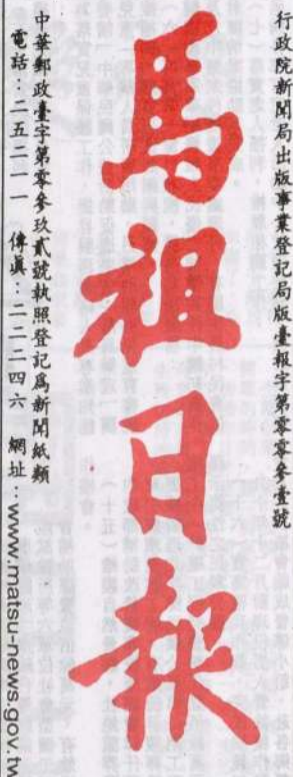 行政院新聞局出版事業登記局版臺報字第零零參壹號
馬祖日報
中華郵政臺字第零參玖貳號執照登記爲新聞紙類
電話：二五二一一　傳眞：二二二四六　網址：www.matsu-news.gov.tw